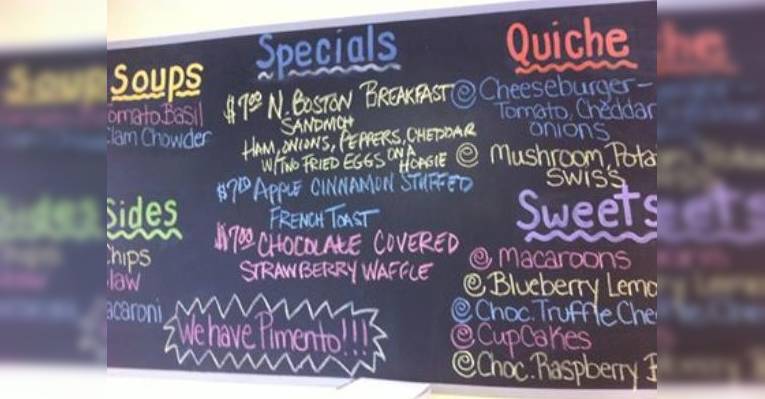 Soups
Tomato Basil
Clam Chowder
Sides
Chips
Slaw
Macaroni
Specials
$7.00 N. BOSTON BREAKFAST
SANDWICH
HAM, ONIONS, PEPPERS, CHEDDAR
W/TWO FRIED EGGS ON A
HOAGIE
$7.00 APPLE CINNAMON STUFFED
FRENCH TOAST
$7.00 CHOCOLATE COVERED
STRAWBERRY WAFFLE
We have Pimento!!!
Quiche
Cheeseburger-
Tomato, Cheddar
onions
Mushroom, Pota
SWISS
Sweets
Macaroons
Blueberry Lemo
Choc. Truffle Che
CupCakes
Choc. Raspberry